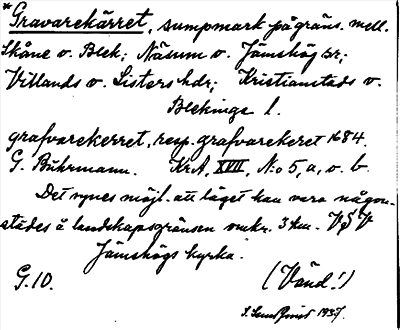 *Gravarekärret, sumpmark på gräns. mell.
Skåne o. Blek; Näsum o. Jämshög sr;
Villands o. Listers hdr; Kristianstads o.
Blekinge l.
grafvarekerret, resp. grafvarekeret 1684.
G. Buhrmann. KrA, XVIII, No 5, a, o. b.
Det synes möjl. att läget kan vara någon-
städes å landskapsgränsen omkr. 3 km. VSV
Jämshögs kyrka.
G. 10. (Vänd!)
1937.